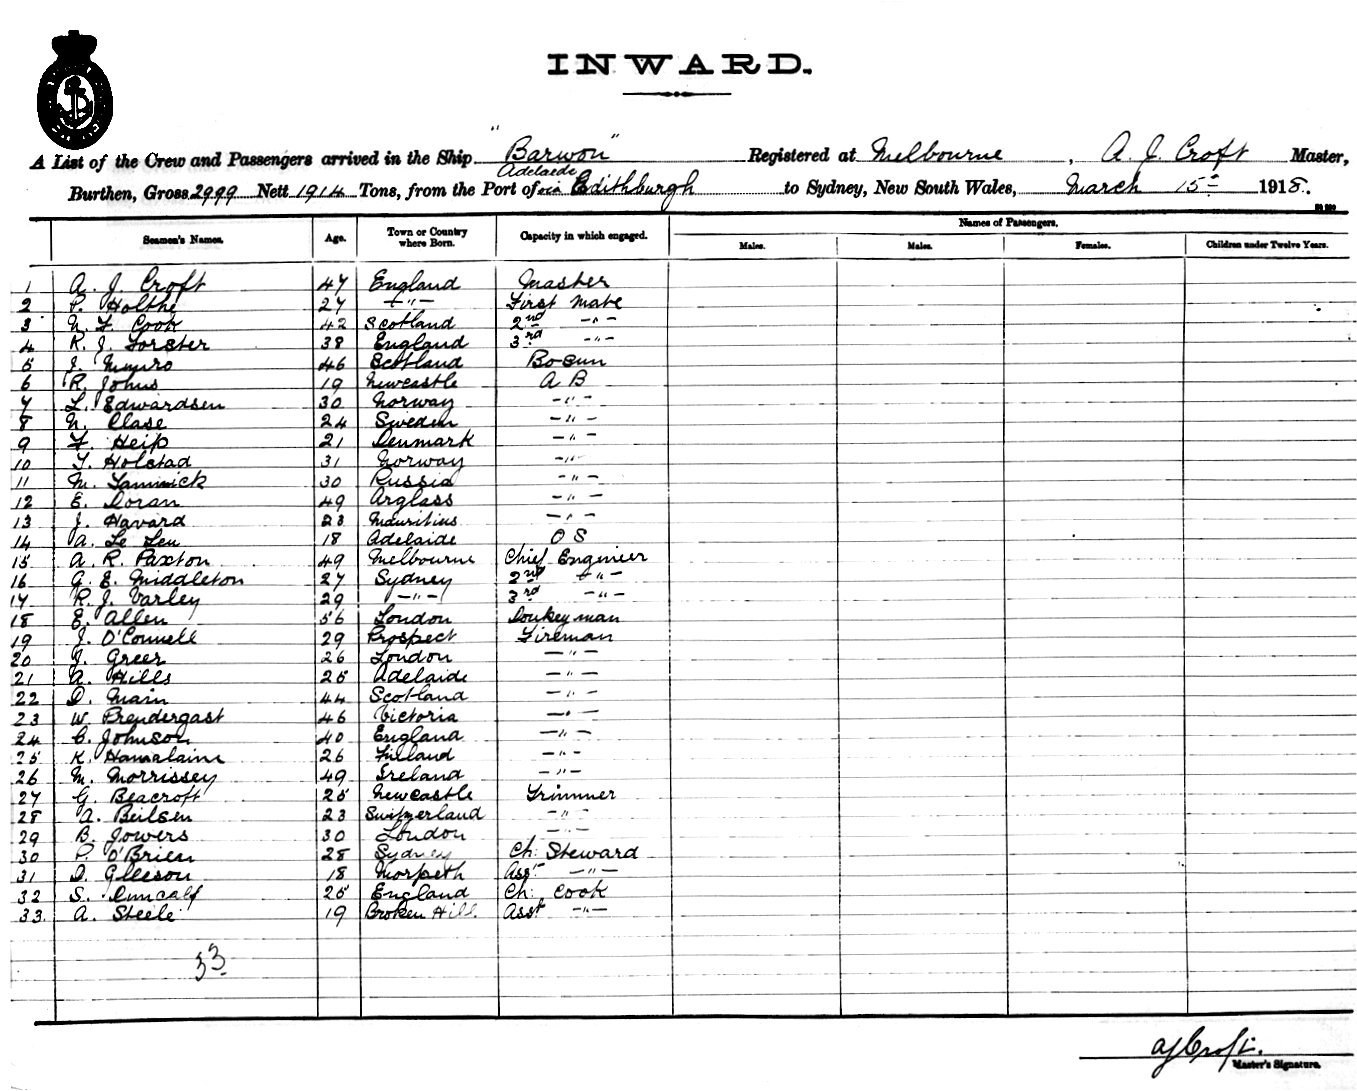 INWARD.
A List of the Crew and Passengers arrived in the Ship "Barwon" Registered at Melbourne, A. J. Croft Master,
Adelaide
Burthen, Gross 2999 Nett 1914 Tons, from the Port of via Edithburgh to Sydney, New South Wales, March 15th 1918.
Names of Passengers.
Seamen's Names. Age. Town or Country where Born. Capacity in which engaged. Males. Males. Females. Children under Twelve Years.
1 A. J. Croft 47 England Master
2 P. Holthe 27 -"- First Mate
3 N. F. Cook 42 Scotland 2nd -"-
4 R. J. Forster 38 England 3rd -"-
5 J. Munro 46 Scotland Bosun
6 R. Johns 19 Newcastle A B
7 L. Edwardsen 30 Norway -"-
8 N. Clase 24 Sweden -"-
9 F. Heip 21 Denmark -"-
10 T. Holstad 31 Norway -"-
11 M. Tammick 30 Russia -"-
12 E. Doran 49 Arglass -"-
13 J. Havard 23 Mauritius -"-
14 A. Le Leu 18 Adelaide O S
15 A. R. Paxton 49 Melbourne Chief Engineer
16 G. E. Middleton 27 Sydney 2nd -"-
17 R. J. Varley 29 -"- 3rd -"-
18 E. Allen 56 London Donkeyman
19 J. O'Connell 29 Prospect Fireman
20 J. Greer 26 London -"-
21 A. Hills 25 Adelaide -"-
22 D. Main 44 Scotland -"-
23 W. Prendergast 46 Victoria -"-
24 C. Johnson 40 England -"-
25 K. Hamalaine 26 Finland -"-
26 M. Morrissey 49 Ireland -"-
27 G. Beacroft 25 Newcastle Trimmer
28 A. Beilsen 23 Switzerland -"-
29 B. Jowers 30 London -"-
30 P. O'Brien 28 Sydney Ch. Steward
31 D. Gleeson 18 Morpeth Asst -"-
32 S. Duncalf 25 England Ch. Cook
33. A. Steele 19 Broken Hill. Asst -"-
33
A J Croft.
Master's Signature.